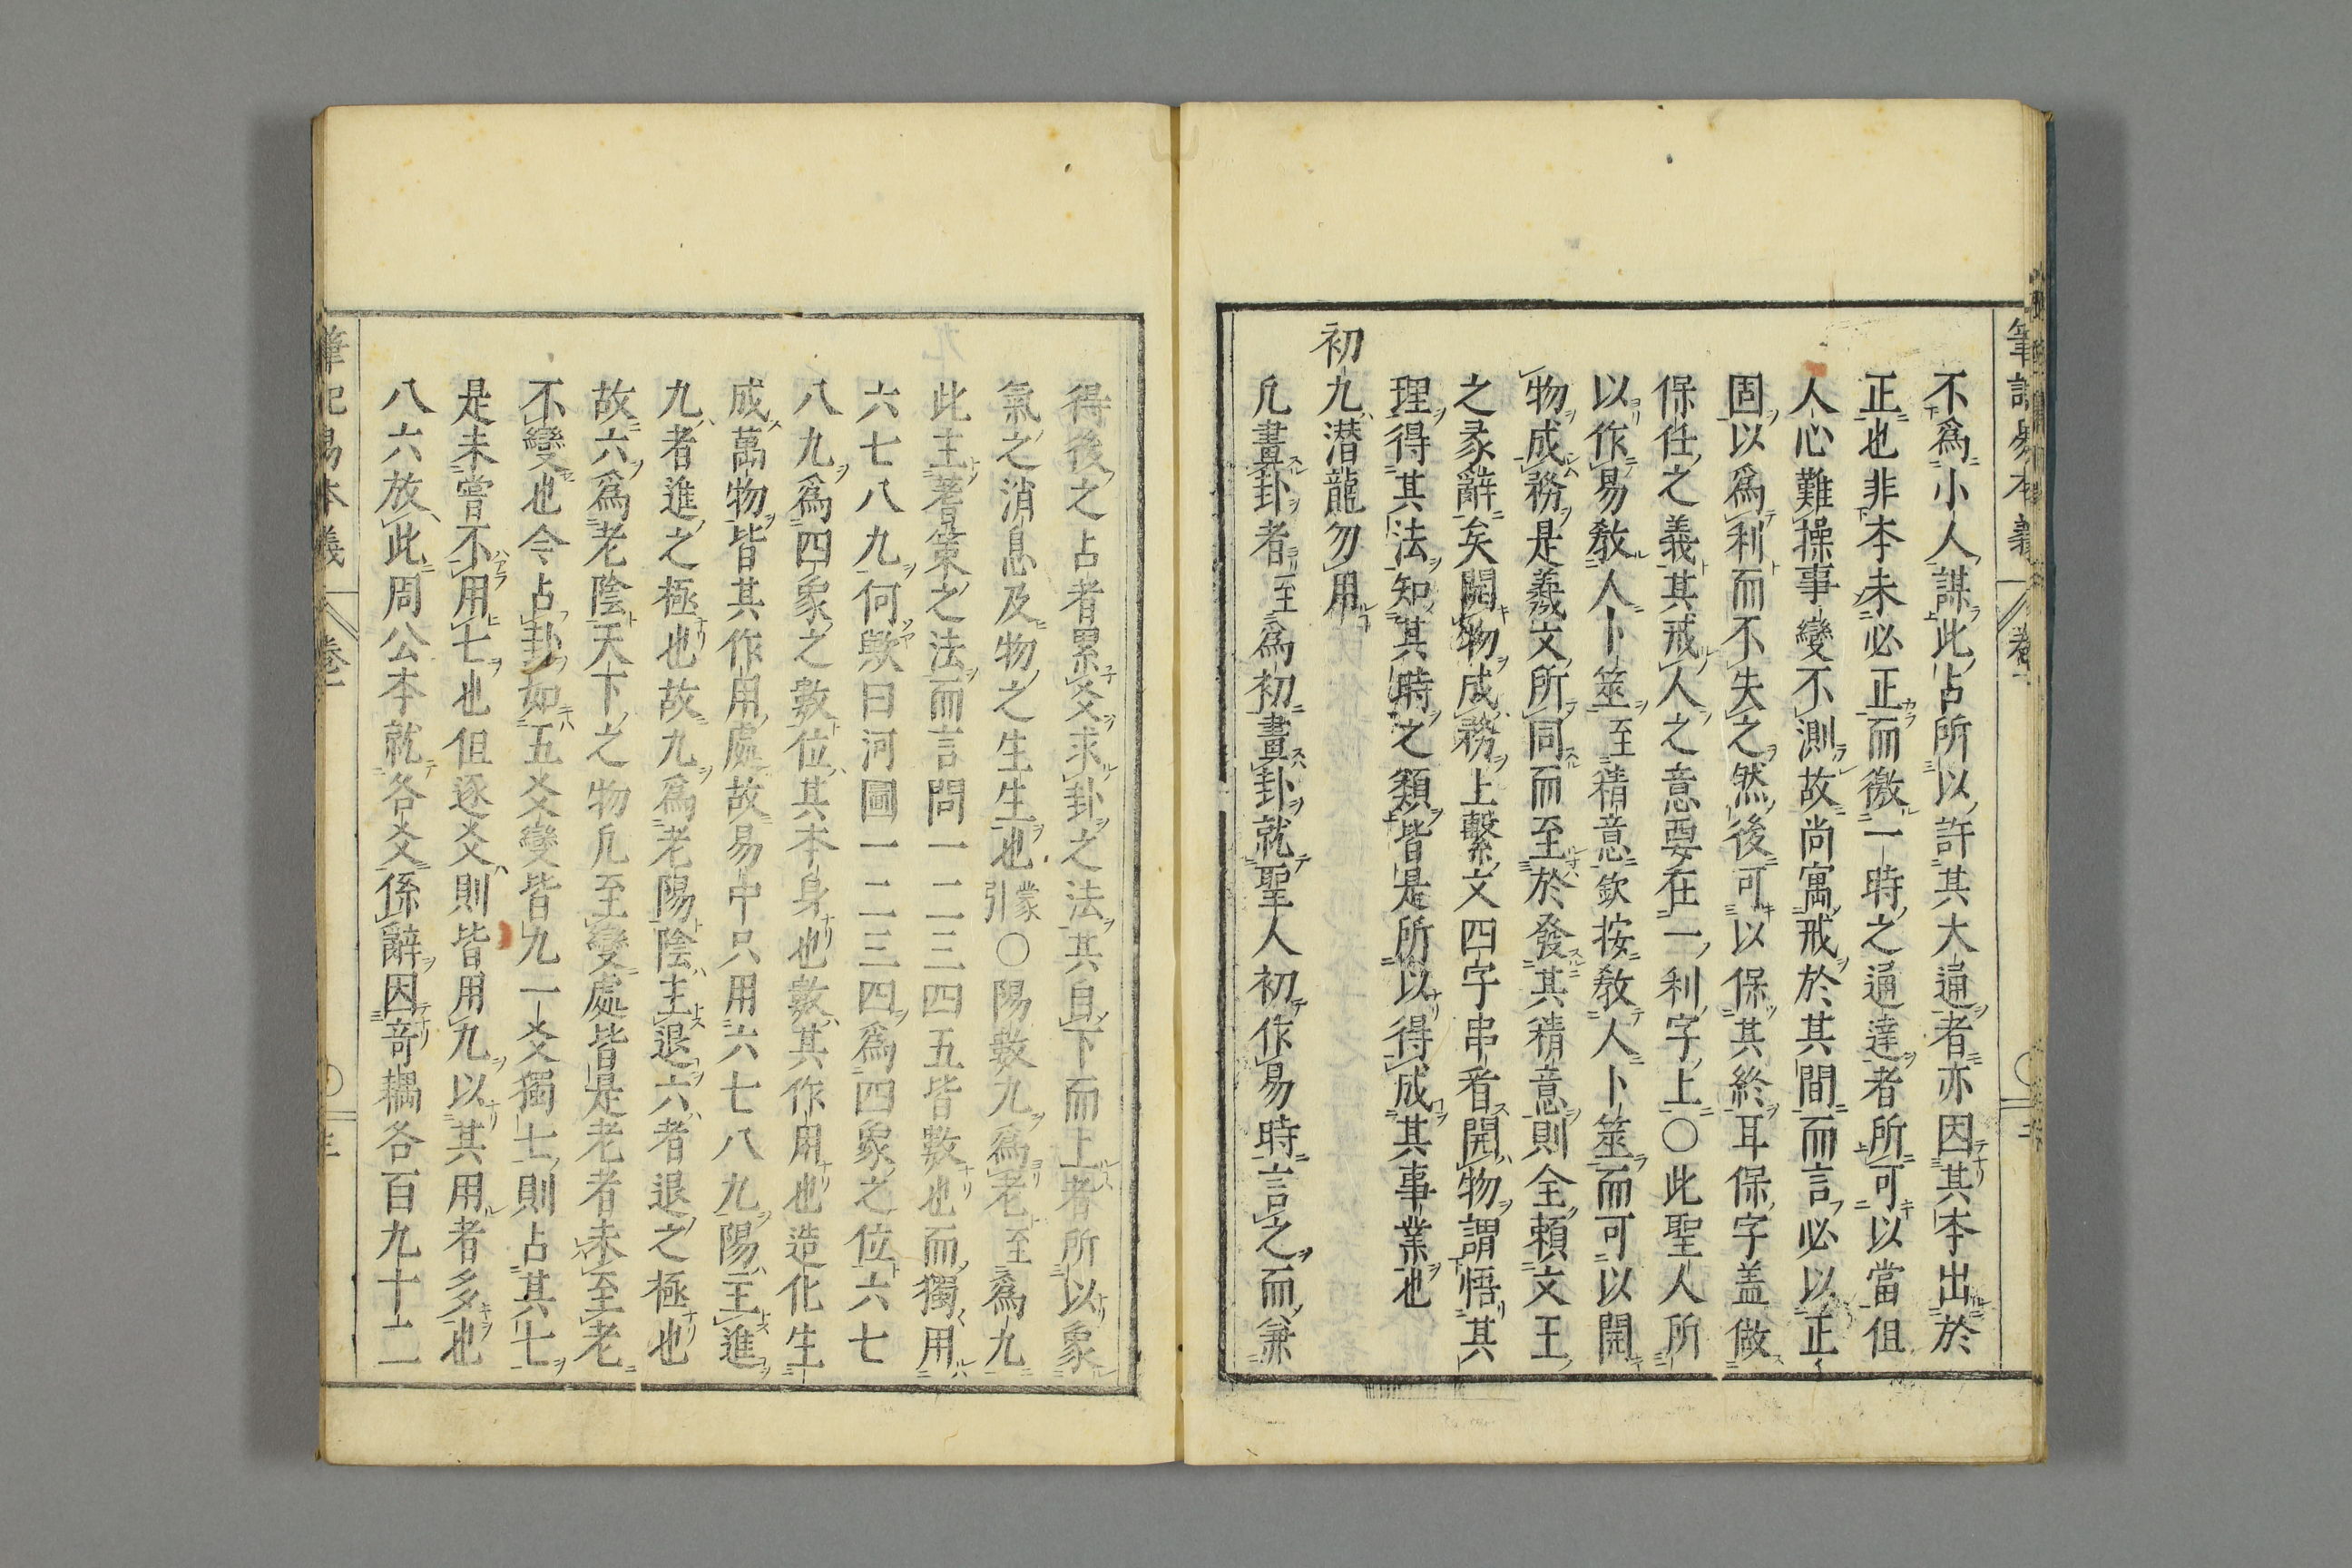 不爲小人謀此占所以許其大通者亦因其本出於
正也非本未必正而徼一時之通達者所可以當但
人心難操事變不測故尚寓戒於其間而言必以正
固以爲利而不失之然後可以保其終耳保字盖做
保任之義其戒人之意要在一利字上〇此聖人所
以作易教人卜筮至精意欽按教人卜筮而可以開
物成務是羲文所同而至於發其精意則全頼文王
之彖辭矣開物成務上繫文四字串看開物謂悟其
理得其法知其時之類皆是所以得成其事業也
初九潜龍勿用
凡畫卦者至爲初畫卦就聖人初作易時言之而兼
得後之占者累爻求卦之法其自下而上者所以象
氣之消息及物之生生也蒙引〇陽數九爲老至爲九
此主蓍策之法而言問一二三四五皆數也而獨用
六七八九何歟曰河圖一二三四爲四象之位六七
八九爲四象之數位其本身也數其作用也造化生
成萬物皆其作用處故易中只用六七八九陽主進
九者進之極也故九爲老陽陰主退六者退之極也
故六爲老陰天下之物凡至變處皆是老者未至老
不變也令占卦如五爻變皆九一爻獨七則占其七
是未嘗不用七也但逐爻則皆用九以其用者多也
八六放此周公本就各爻係辭因竒耦各百九十二
筆記易本義 卷一